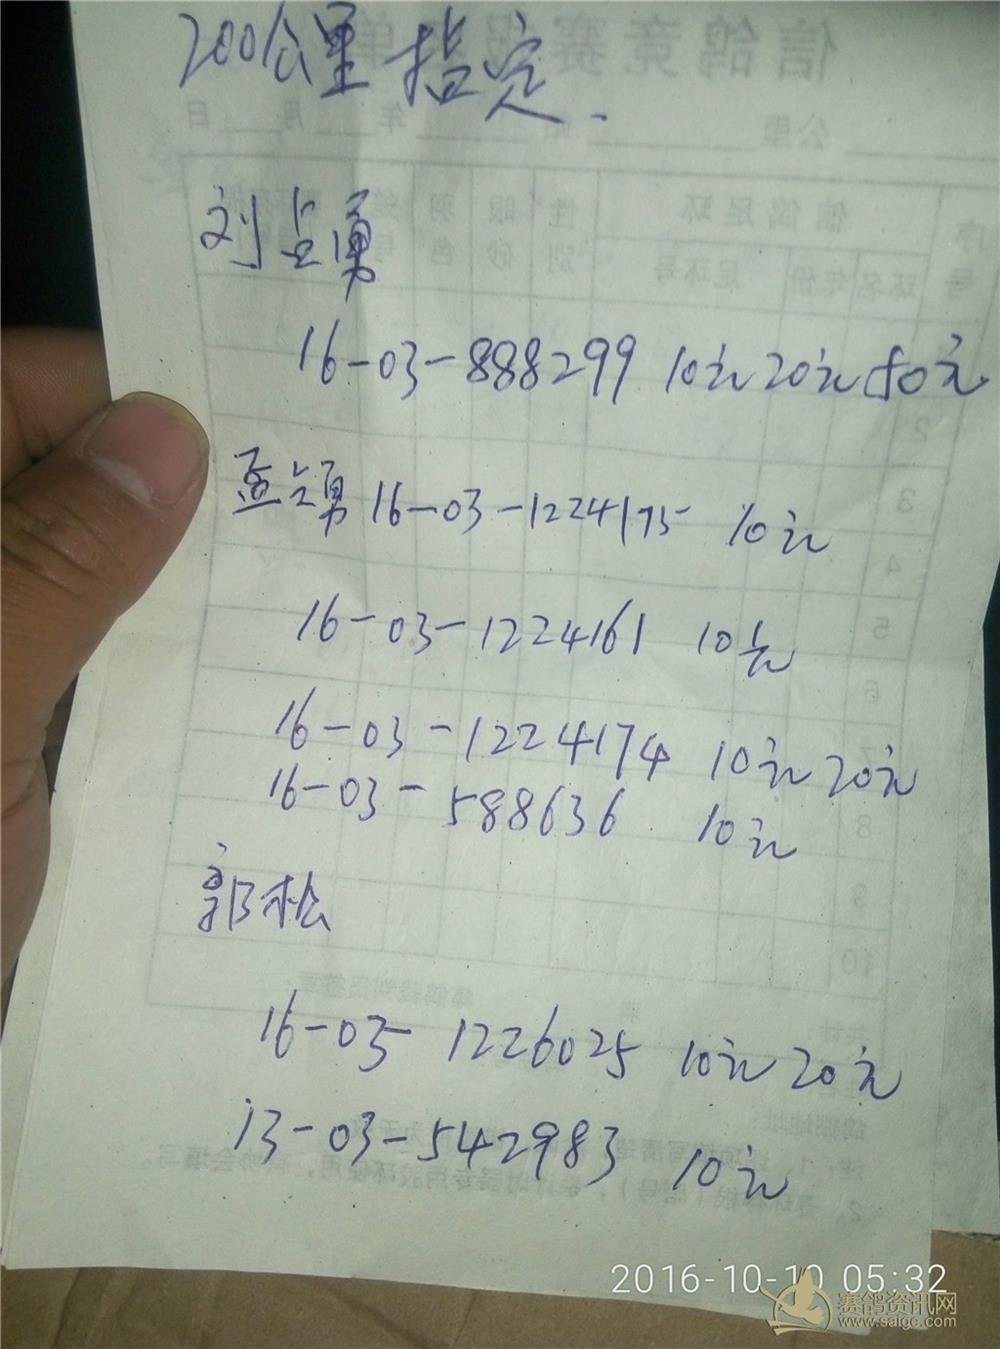 200公里指定.
刘占勇
16-03-888299 10元20元50元
孟占勇 16-03-1224175 10元
16-03-1224161 10元
16-03-1224174 10元20元
16-03-588636 10元
郭松
16-03- 1226025 10元20元
13-03-542983 10元
2016-10-10 05:32
赛鸽资讯网
www.saige.com